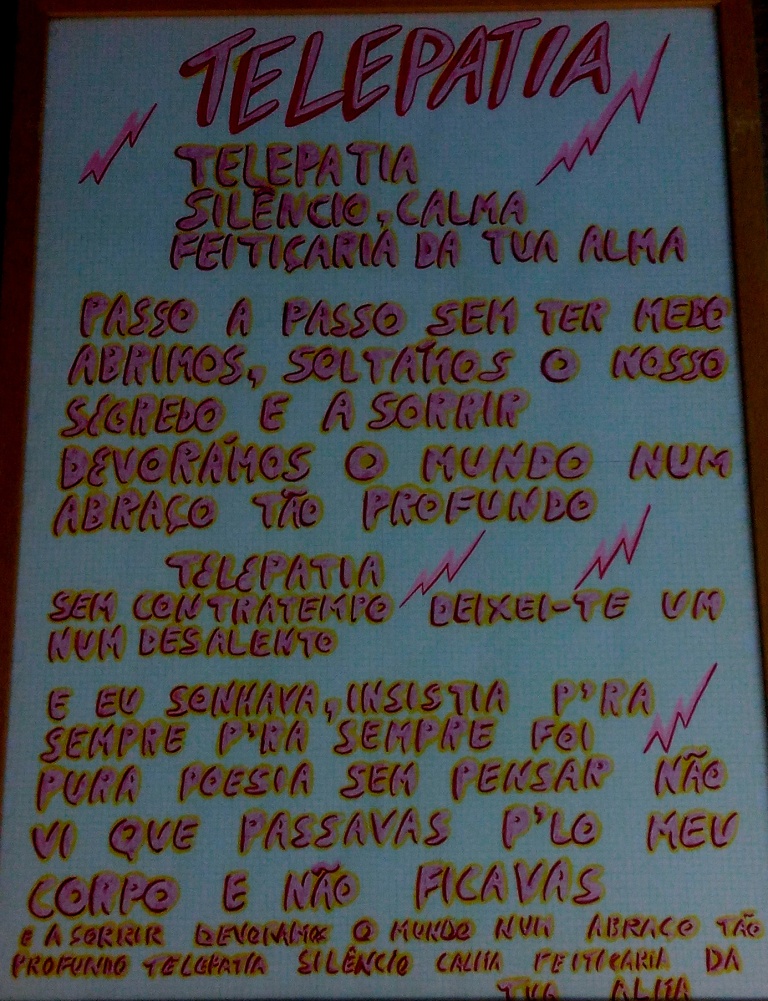 TELEPATIA
TELEPATIA
SILÊNCIO, CALMA
FEITIÇARIA DA TUA ALMA
PASSO A PASSO SEM TER MEDO
ABRIMOS, SOLTÁMOS O NOSSO
SEGREDO E A SORRIR
DEVORÁMOS O MUNDO NUM
ABRAÇO TÃO PROFUNDO
TELEPATIA
SEM CONTRATEMPO DEIXEI-TE UM
NUM DESALENTO
E EU SONHAVA, INSISTIA P'RA
SEMPRE P'RA SEMPRE FOI
PURA POESIA SEM PENSAR NÃO
VI QUE PASSAVAS P'LO MEU
CORPO E NÃO FICAVAS
E A SORRIR DEVORAMOS O MUNDO NUM ABRAÇO TÃO
PROFUNDO TELEPATIA SILÊNCIO CALMA FEITICARIA DA
TUA ALMA